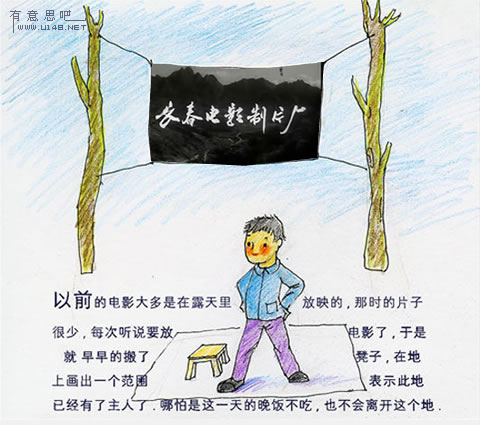 有意思吧
www.u148.net
长春电影制片厂
以前的电影大多是在露天里 放映的，那时的片子
很少，每次听说要放 电影了，于是
就 早早的搬了 凳子，在地
上画出一个范围 表示此地
已经有了主人了．哪怕是这一天的晚饭不吃，也不会离开这个地．